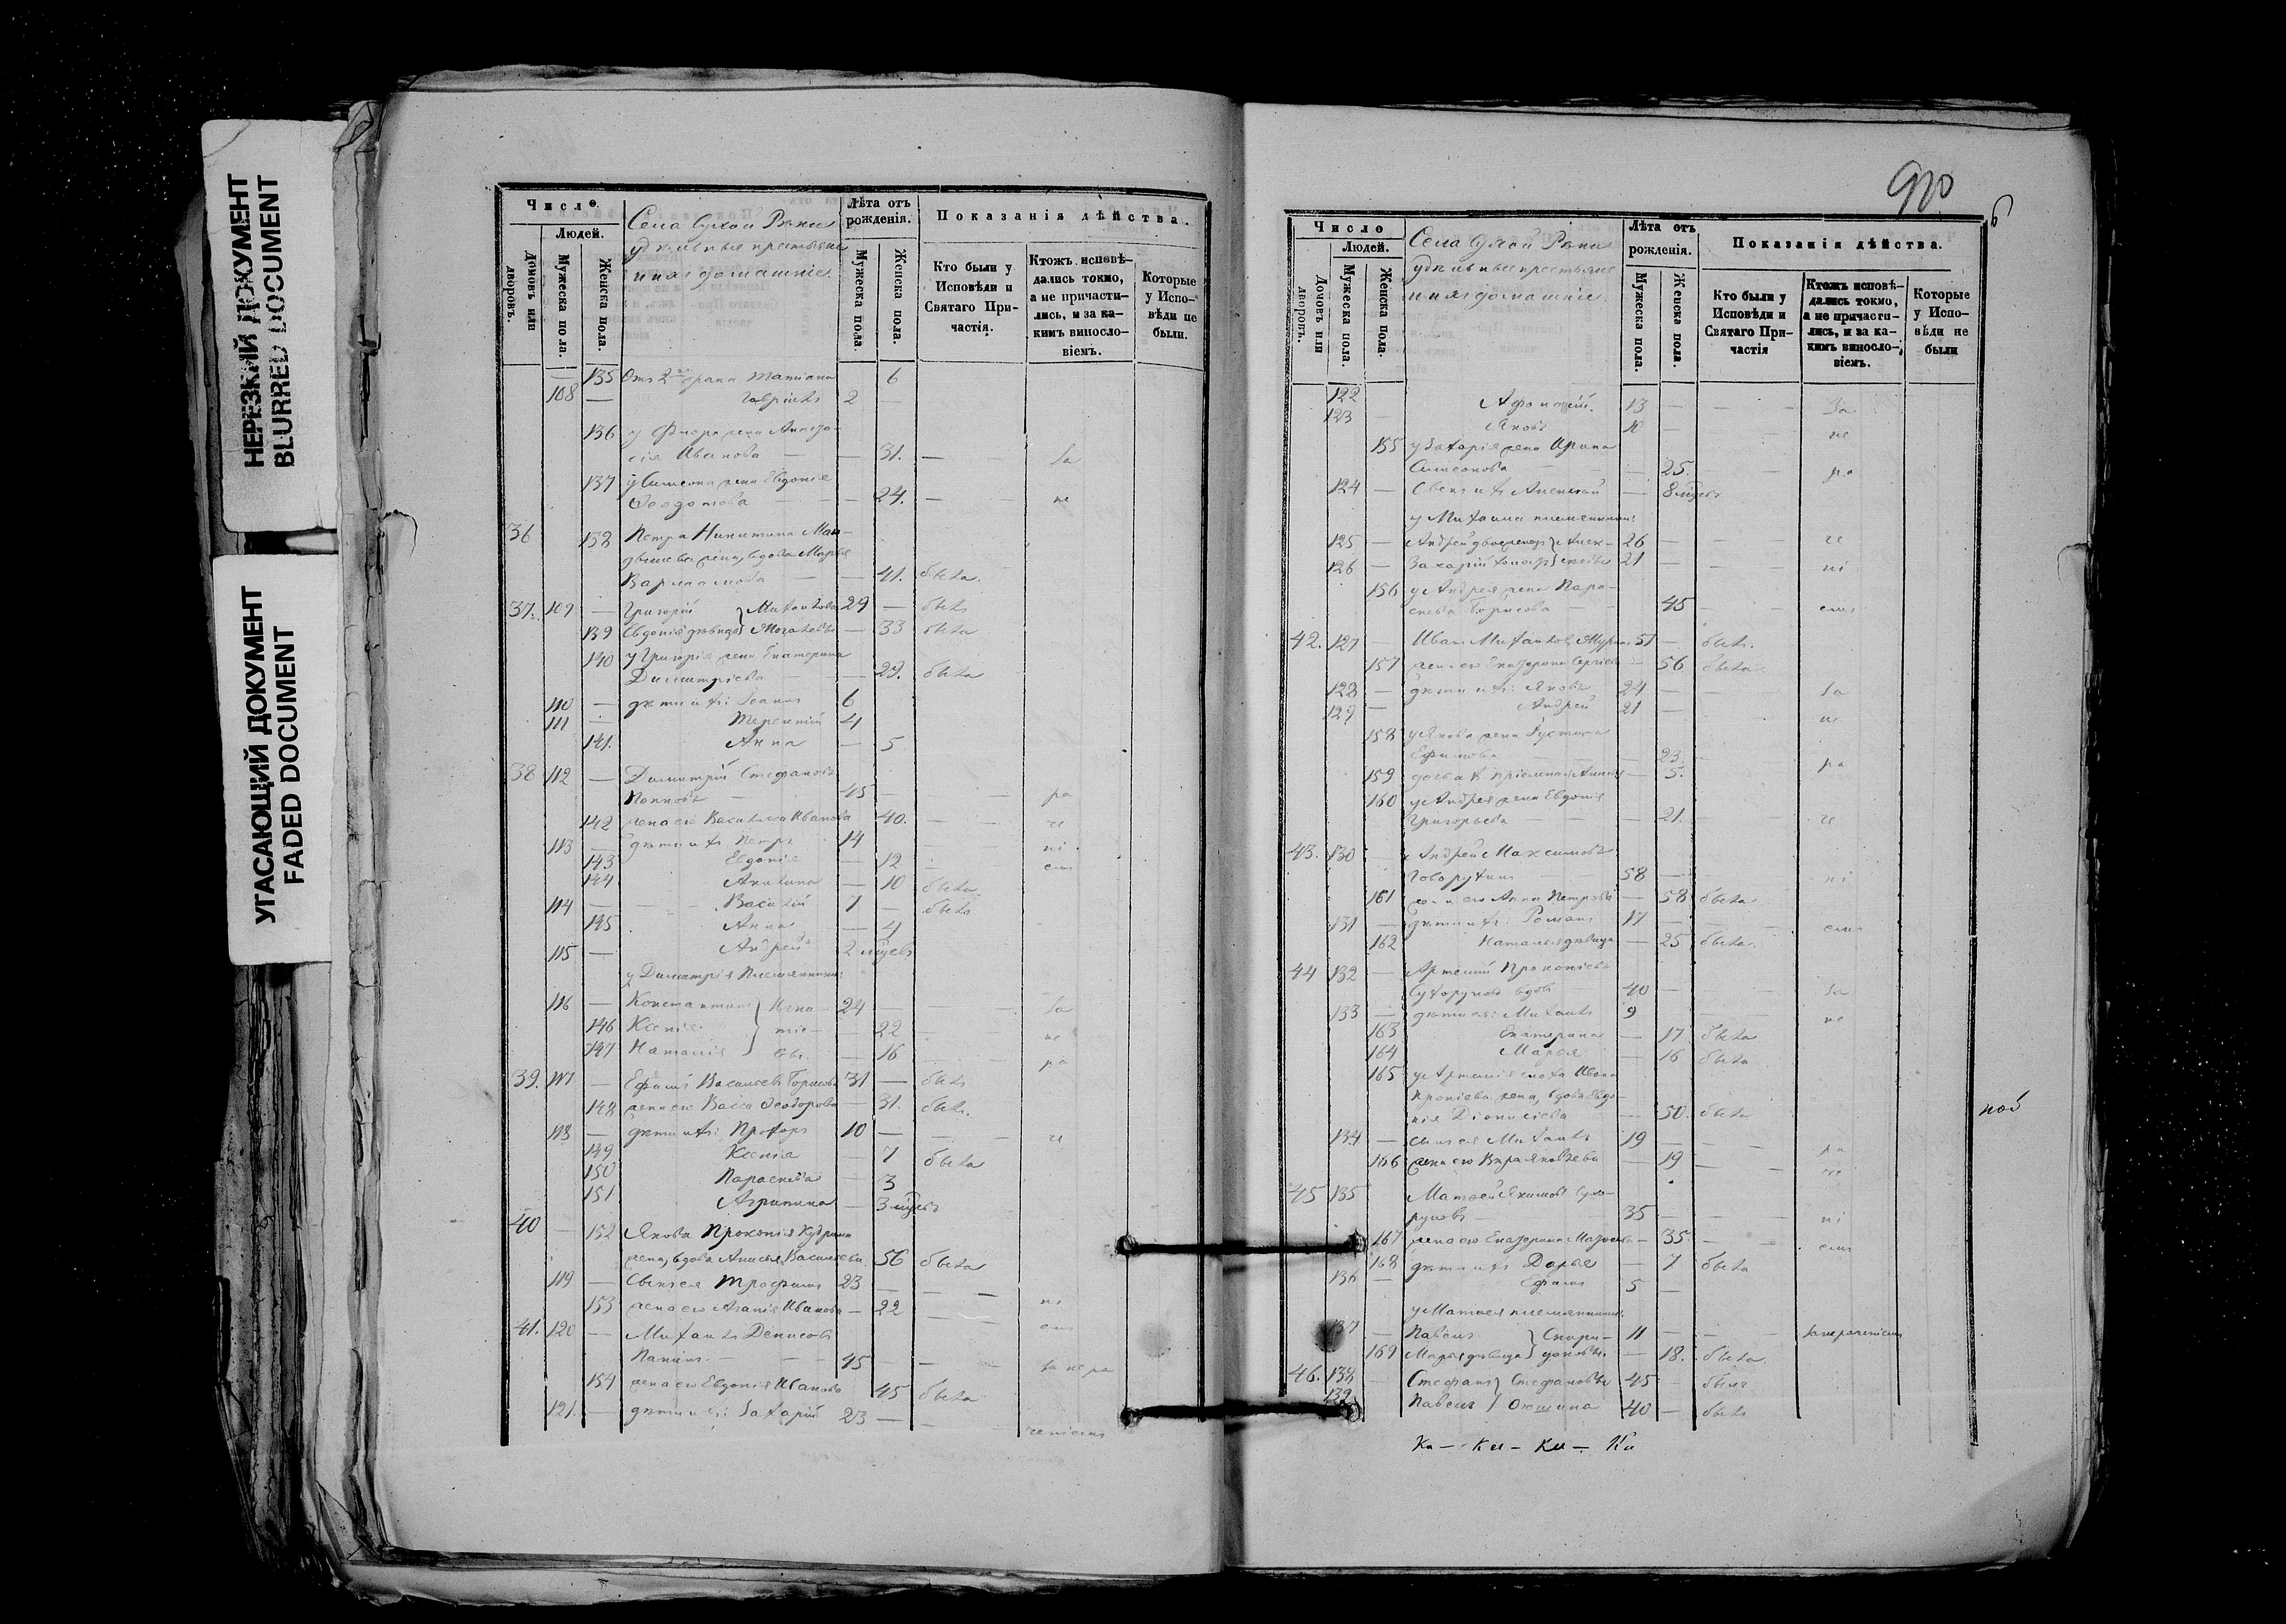 НЕРЕЗКИЙ ДОКУМЕНТ
BLURRED DOCUMENT
УГАСАЮЩИЙ ДОКУМЕНТ
FADED DOCUMENT
Число
Людей.
Домовъ или дворовъ.
Мужеска пола.
Женска пола.
Села Сухой Рѣчки
удѣльные крестьяне
и ихъ домашніе.
Лѣта отъ рожденія.
Мужеска пола.
Женска пола.
Показанія дѣйства.
Кто были у Исповѣди и Святаго Причастія.
Ктожъ исповѣ-
дались токмо,
а не причасти-
лись, и за ка-
кимъ виносло-
віемъ.
Которые
у Испо-
вѣди не
были.
135 Отъ 2го брака Татіана 6
108 — Гавріилъ 2 —
136 у Флора жена Анаста-
сія Иванова — — 31. — За
137 у Симеона жена Евдокія
Ѳеодотова — — 24. — не
36 138 Петра Никитина
жена, вдова Марья
Варламова — — 41. была.
37. 109 — Григорій } Михайловы 29 — былъ
139 Евдокія дѣвица — 33 была
140 у Григорія жена Екатерина
Димитріева — — 29. была
110 — дѣти ихъ: Іоаннъ 6
111 — Терентій 4
141. Анна — 5
38 112 — Димитрій Стефановъ
Поповъ — 45 — ра
142 жена его Василисса Иванова 40. — че
113 — дѣти ихъ Петръ 14 — ні
143 Евдокія — 12 емъ
144 Акилина — 10 была.
114 — Василій 7 — былъ
145 Анна — 4
115 — Андрей 2 мѣсяц.
у Димитрія племянники:
116 — Константинъ } Игна- 24 — За
146 Ксенія } тіе- — 22 не
147 Наталія } вы. — 16 ра
39. 117 — Ефимъ Васильевъ Борисовъ 31 — былъ
148 жена его Васса Ѳеодорова — 31. был.
118 — дѣти ихъ: Прохоръ 10 — че
149 Ксенія — 7 была
150 Параскева — 3
151 Агрипина — 3 мѣсяц.
40 — 152 Якова Прокопія
жена, вдова Анисья Васильева 56 была
119 — сынъ ея Трофимъ 23 — ні
153 жена его Агапія Иванова — 22 емъ
41. 120 — Михаилъ Денисовъ
Панинъ. — 45 — за не ра
154 жена его Евдокія Иванова 45 была
121. — дѣти ихъ: Захарій 23 — ченіемъ
Число
Людей.
Домовъ или дворовъ.
Мужеска пола.
Женска пола.
Села Сухой Рѣчки
удѣльные крестьяне
и ихъ домашніе.
Лѣта отъ
рожденія.
Мужеска пола.
Женска пола.
Показанія дѣйства.
Кто были у Исповѣди и Святаго Причастія
Ктожъ исповѣ-
дались токмо,
а не причасти-
лись, и за ка-
кимъ виносло-
віемъ.
Которые
у Испо-
вѣди не
были
122 Афонасій. 13 — За
123 — Яковъ 10 — не
155 у Захарія жена Ирина
Симеонова — 25. ра
124 — сынъ ихъ Алексѣй — 8 мѣсяц.
у Михаила племянники:
125 — Андрей } Алек- 26 — че
126 — Захарій холостъ } сѣевы 21 — ні
156 у Андрея жена Пара-
скева Борисова — 45 емъ
42. 127 — Иванъ Михайловъ 51 — былъ.
157 жена его Екатерина Сергіева — 56 была
128 — дѣти ихъ: Яковъ 24 — За
129 — Андрей 21 — не
158 у Якова жена Іустина
Ефимова — 23. ра
159 дочь ихъ пріемная — 5.
160 у Андрея жена Евдокія
Григорьева — 21. че
43. 130 — Андрей Максимовъ
Говорухинъ — 58 — ні
161 жена его Анна Петрова — 58 была
131 — дѣти ихъ: Романъ 17 — емъ
162 Наталья дѣвица — 25 была.
44 132 — Артемій Прокопіевъ
Сухоруковъ вдовъ — 40 — За
133 — дѣти его: Михаилъ 9 не
163 Екатерина — 17 была
164 Марья — 16 была
165 у Артемія сноха Ивана
жена, вдова Евдо-
кія Діонисіева — 50. была
134 — сынъ ея Михаилъ 19 — ра
166 жена его Вѣра Яковлева — 19 че
45 135 Матвей Якимовъ Сухо-
руковъ — 35 — ні
167 жена его Екатерина — 35 емъ
168 дѣти ихъ Дарья — 7 была
136 — Ефимъ 5 —
у Матвея племянники:
137 — Павелъ } Спири- 11 — за нераченіемъ
169 Марья дѣвица } доновы. — 18. была.
46. 138 — Стефанъ } Стефановы 45 — былъ
139 Павелъ } 40 — былъ
Ки — Ки — Ки — Ки